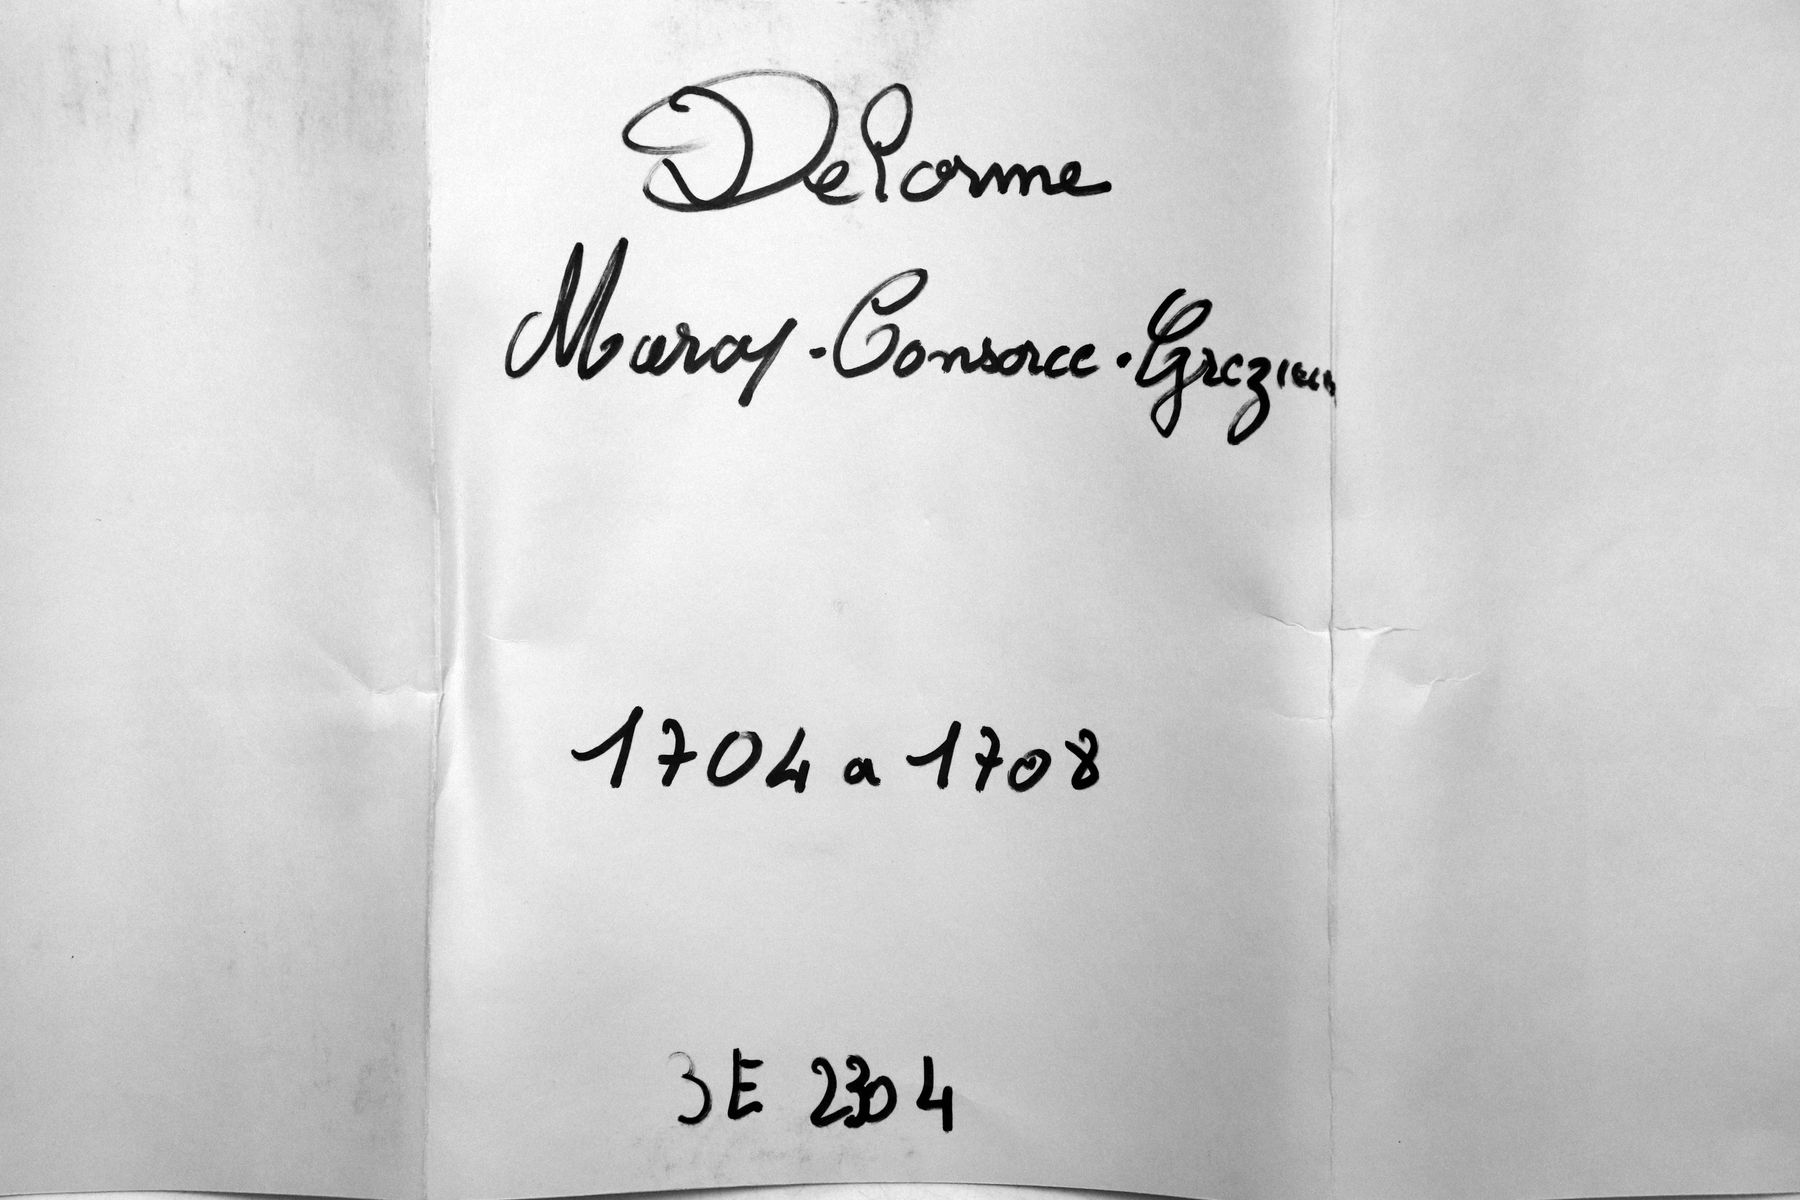 Delorme
Maroy - Consorce - Grezieu
1704 a 1708
3E 2304